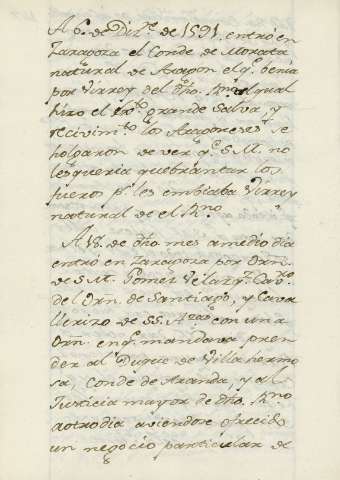 A 6. de Diz.e de 1591. entró en
Zaragoza el Conde de Morata
natural de Aragon el q.e benia
por Virrey del dho. Rno. alqual
hizo el grande salva, y
recivim.to los Aragoneses se
holgaron de ver q.e S.M. no
les queria quebrantar los
fueros p.s les embiaba Virrey
natural de el Rno.
A 18. de dho mes a medio dia
entró en Zaragoza por Orn.
de S.M. Gomez Velazq.z Cav.ro
del Orn. de Santiago, y Cava
llerizo de SS. A. con una
Orn. en q.e mandava pren
der al Duque de Villa hermo
sa, Conde de Aranda, y al
Justicia mayor de dho. Rno
a otro dia aviendose ofrecido
un negocio particular de